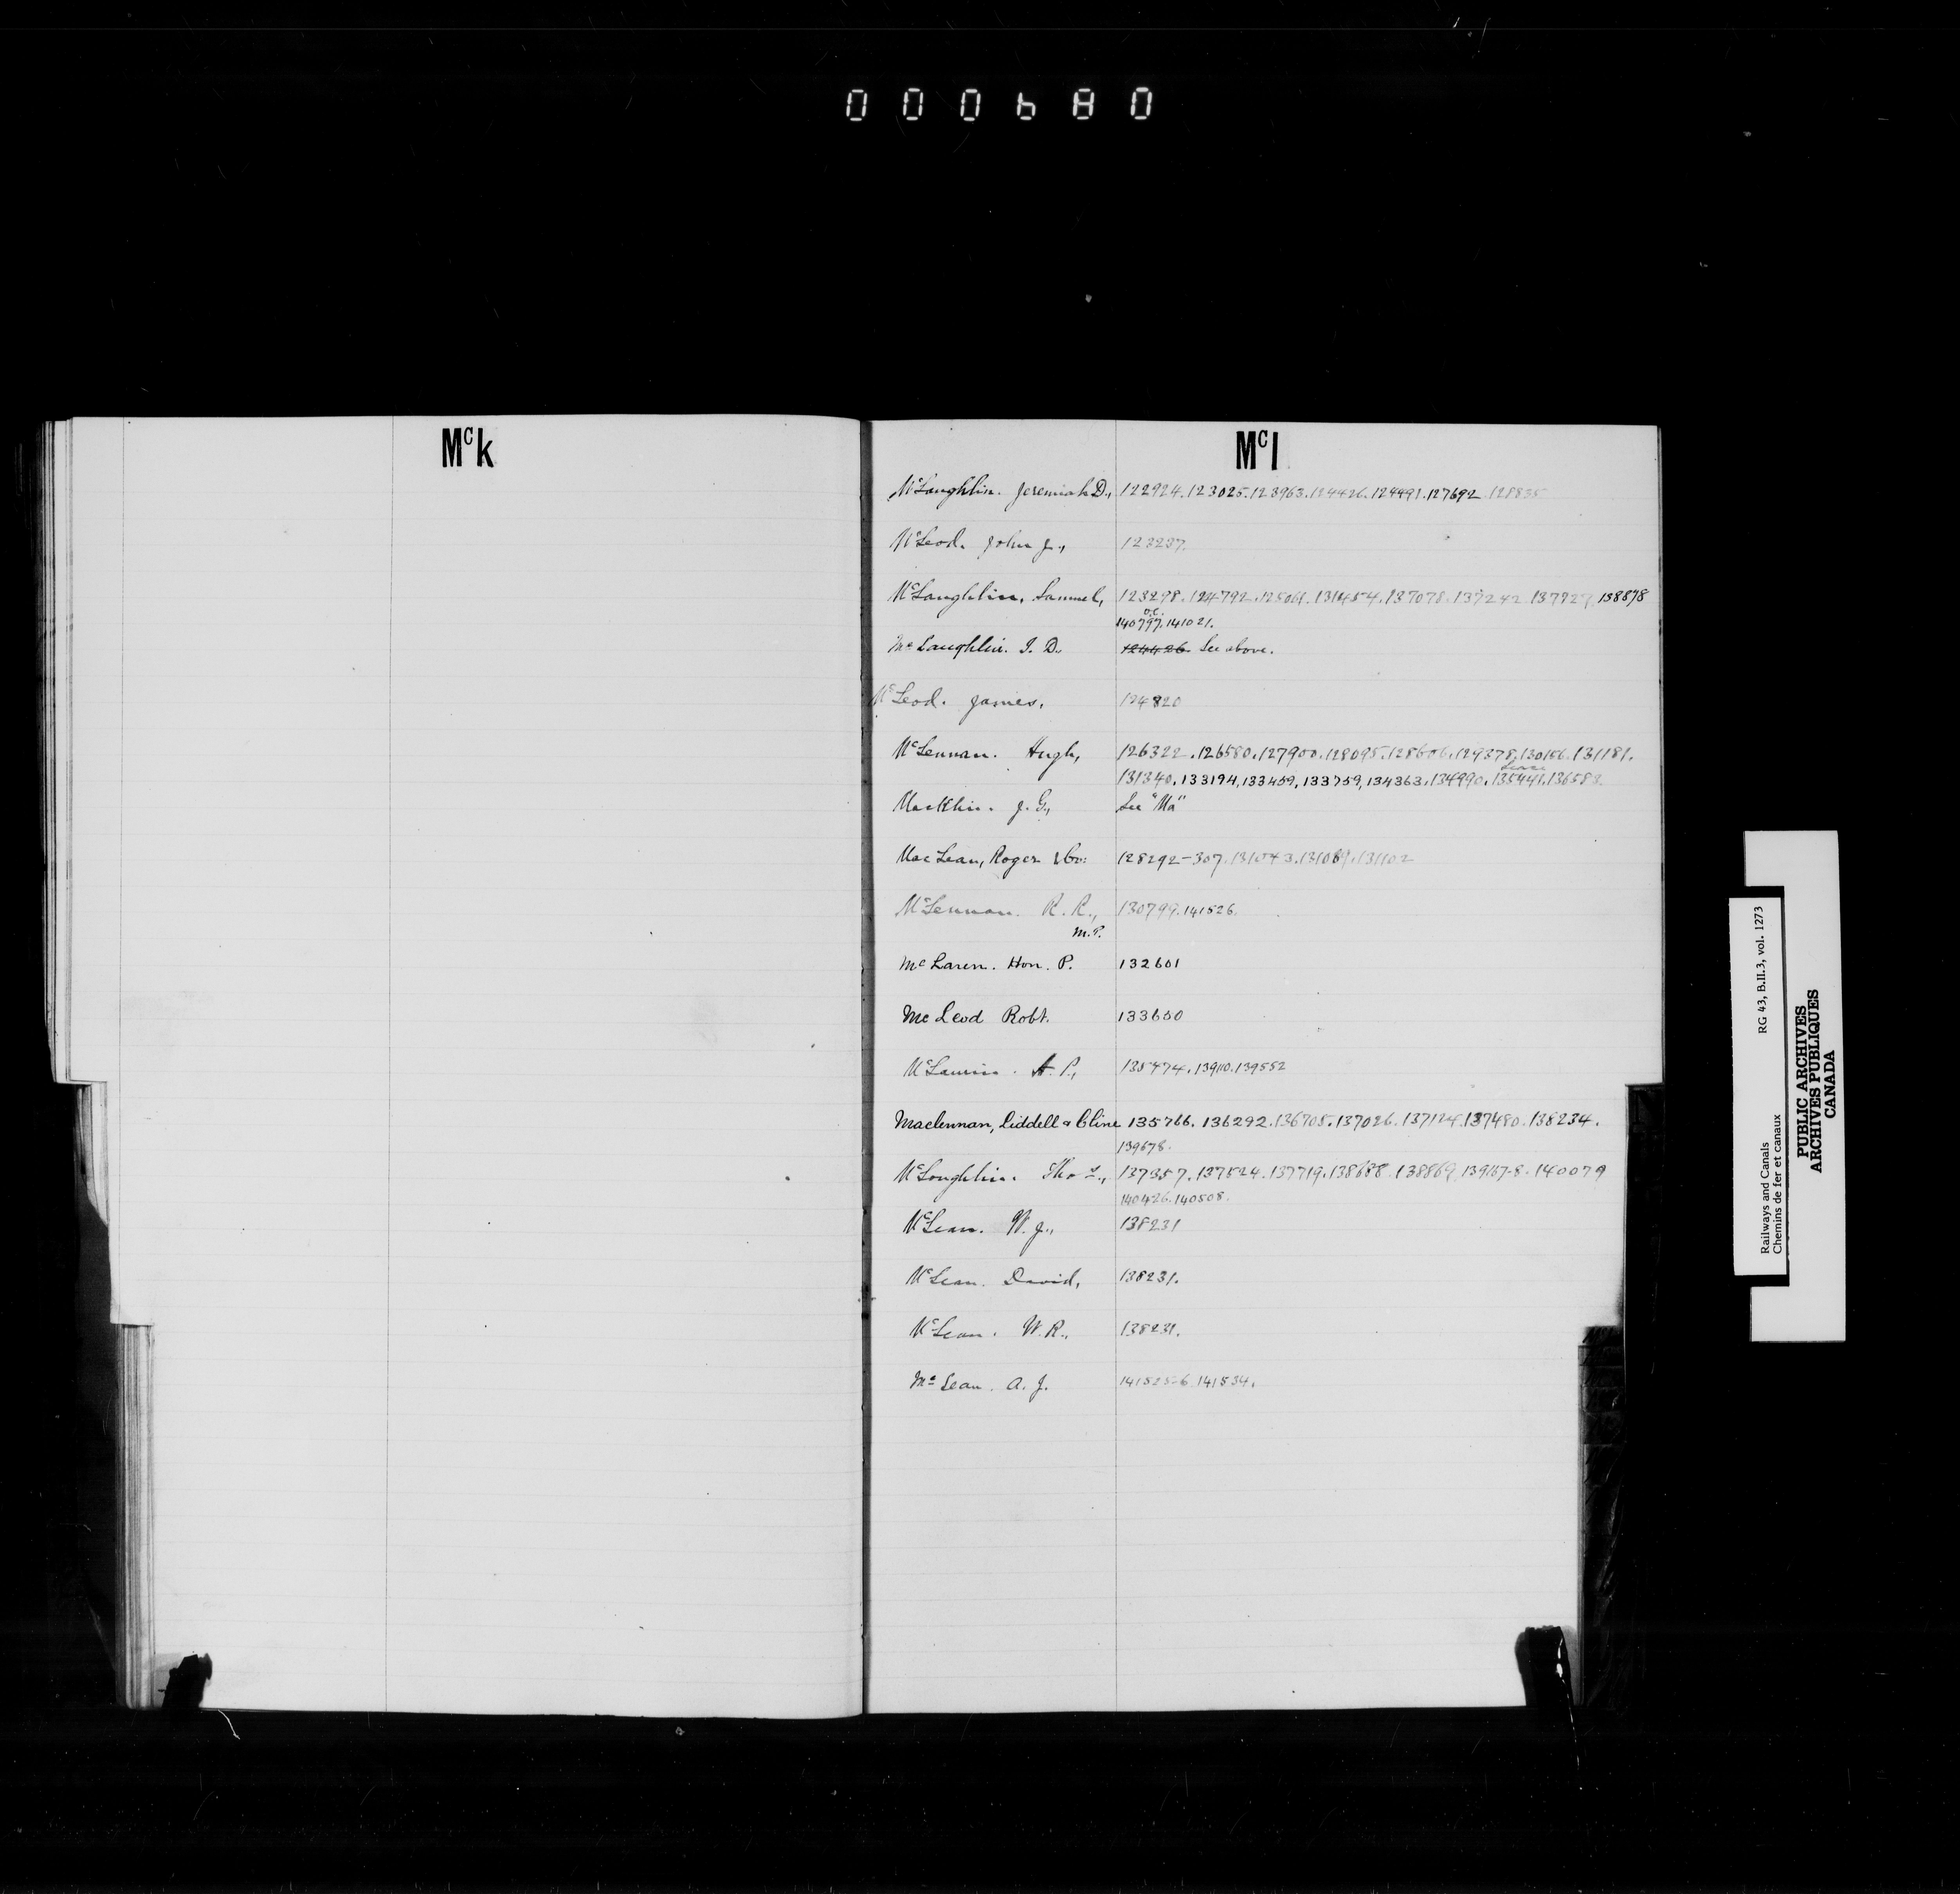 000680
McK
Mcl
McLaughlin. Jeremiah D., 122924. 123025. 123963. 124426. 124491. 127692. 128835
McLeod. John J., 123237.
McLaughlin, Samuel, 123298. 124792. 125061. 131454. 137078. 137242. 137927. 138878
O.C.
140797. 141021.
McLaughlin. J. D. 124426 See above.
McLeod. James. 124820
McLennan. Hugh, 126322. 126580. 127900. 128095. 128606. 129378. 130156. 131181.
Lease
131340. 133194, 133459, 133759, 134363. 134990. 135441. 136583.
Macklin. J. G., See "Ma"
MacLean, Roger & Co: 128292-307. 131043. 131089. 131102
McLennan. R. R., 130799. 141526.
M.P.
McLaren. Hon. P. 132601
McLeod Robt. 133600
McLaurin. A. P., 135474. 139110. 139552
Maclennan, Liddell & Cline 135766. 136292. 136705. 137026. 137124. 137480. 138234.
139678.
McLoughlin. Thos., 137357. 137524. 137719. 138688. 138869. 139137-8. 140079
140426. 140508.
McLean. W. J., 138231
McLean. David, 138231.
McLean. W. R., 138231.
McLean. A. J. 141525-6. 141534.
Railways and Canals RG 43, B.II.3, vol. 1273
Chemins de fer et canaux
PUBLIC ARCHIVES
ARCHIVES PUBLIQUES
CANADA